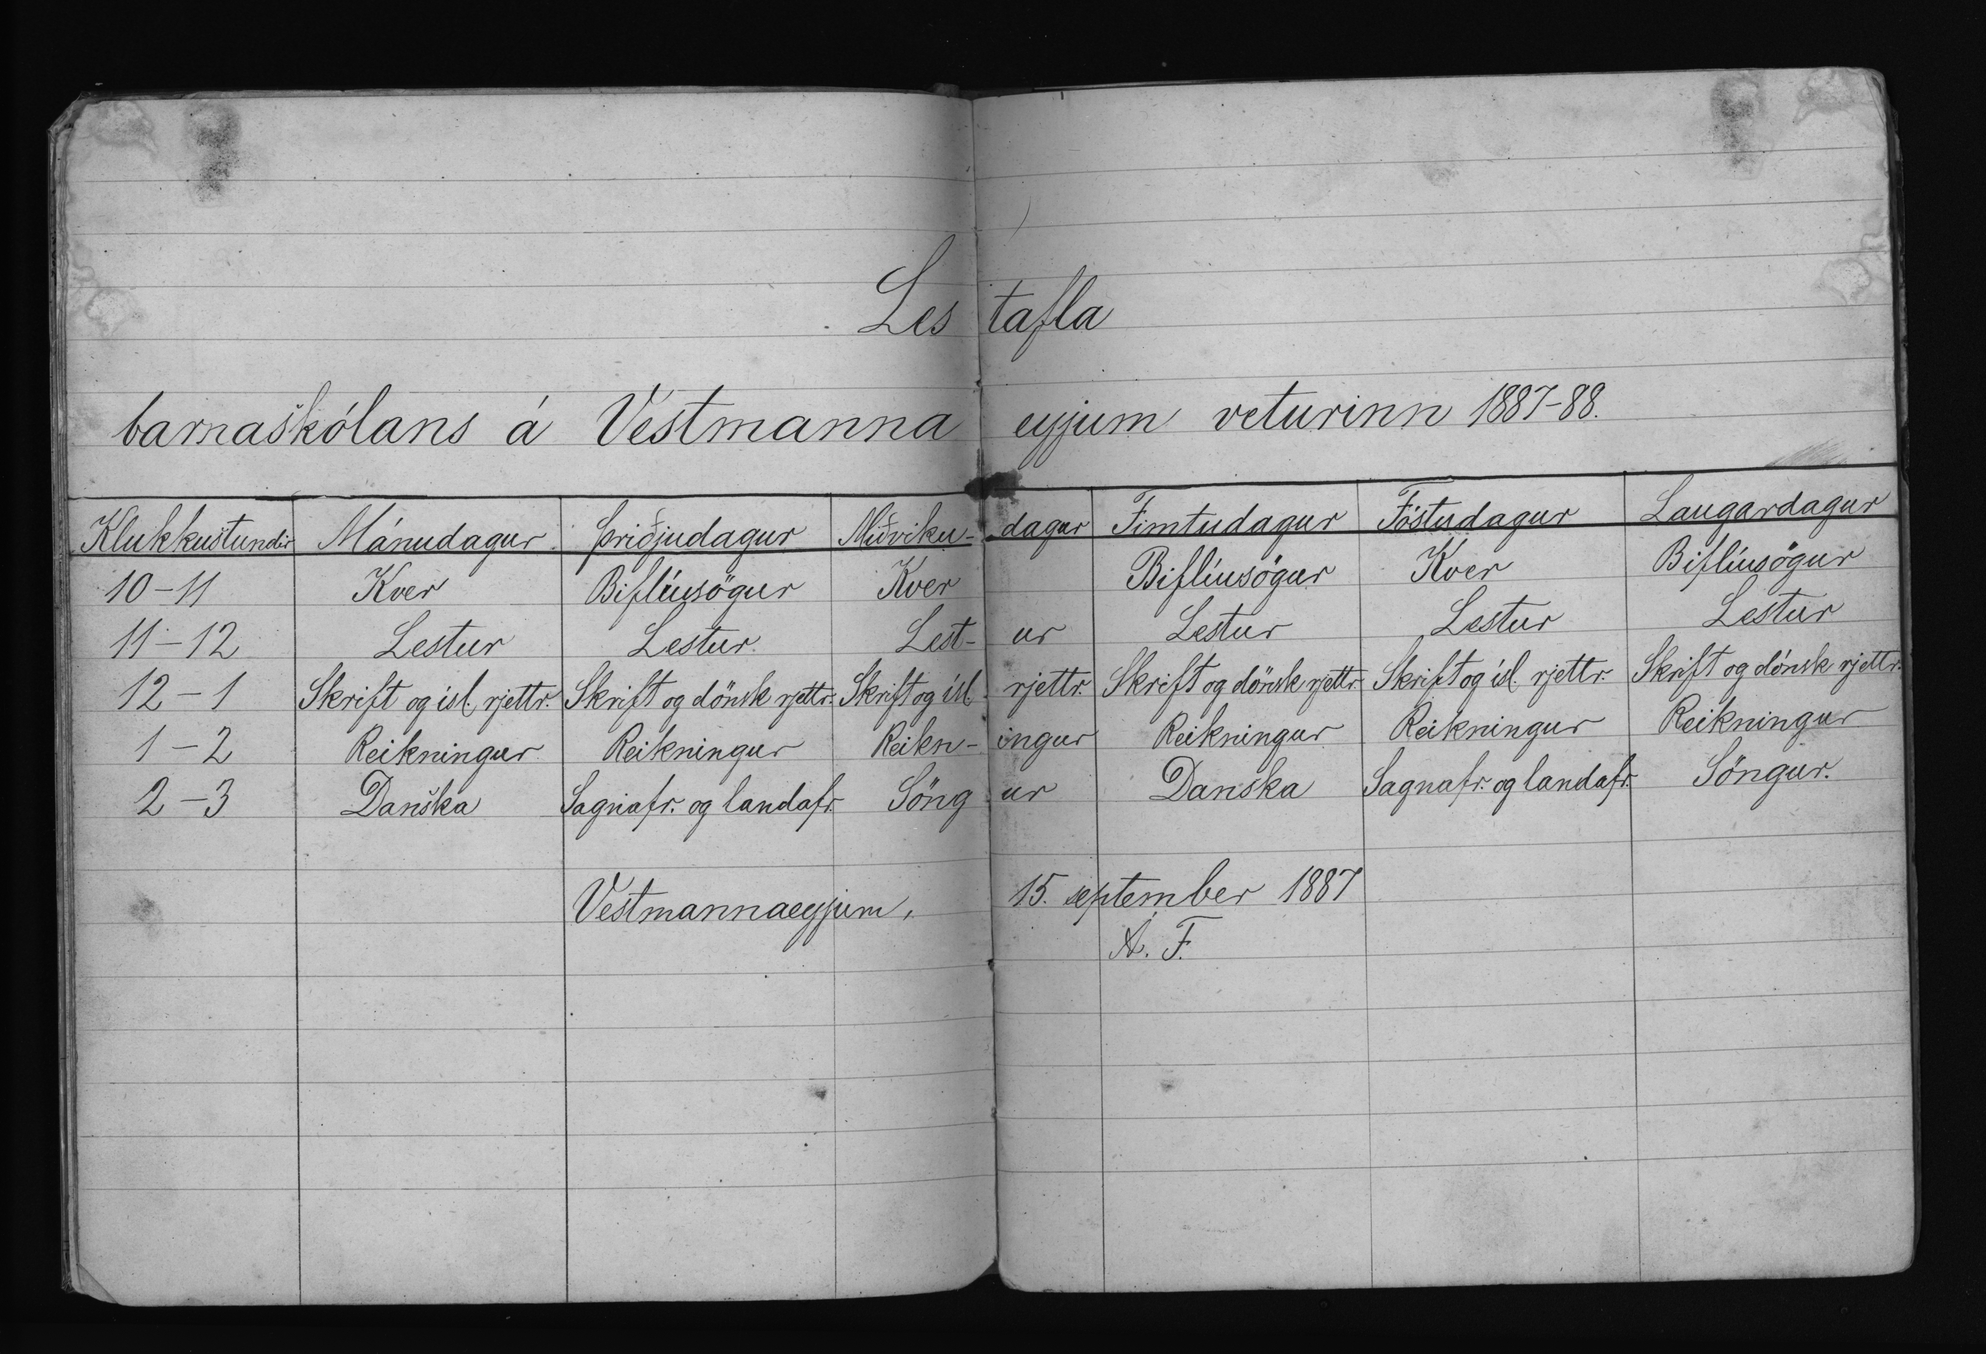 Lestafla
barnaskólans á Vestmannaeyjum veturinn 1887-88.
Klukkustundir Mánudagur Þriðjudagur Miðviku-dagur Fimtudagur Föstudagur Laugardagur
10-11 Kver Biflíusögur Kver Biflíusögur Kver Biflíusögur
11-12 Lestur Lestur. Lest-ur Lestur Lestur Lestur
12-1 Skrift og ísl. rjettr. Skrift og dönsk rjettr. Skrift og ísl. rjettr. Skrift og dönsk rjettr. Skrift og ísl. rjettr. Skrift og dönsk rjettr.
1-2 Reikningur Reikningur Reikn-ingur Reikningur Reikningur Reikningur
2-3 Danska Sagnafr. og landafr. Söngur Danska Sagnafr. og landafr. Söngur.
Vestmannaeyjum, 15. september 1887
Á. F.